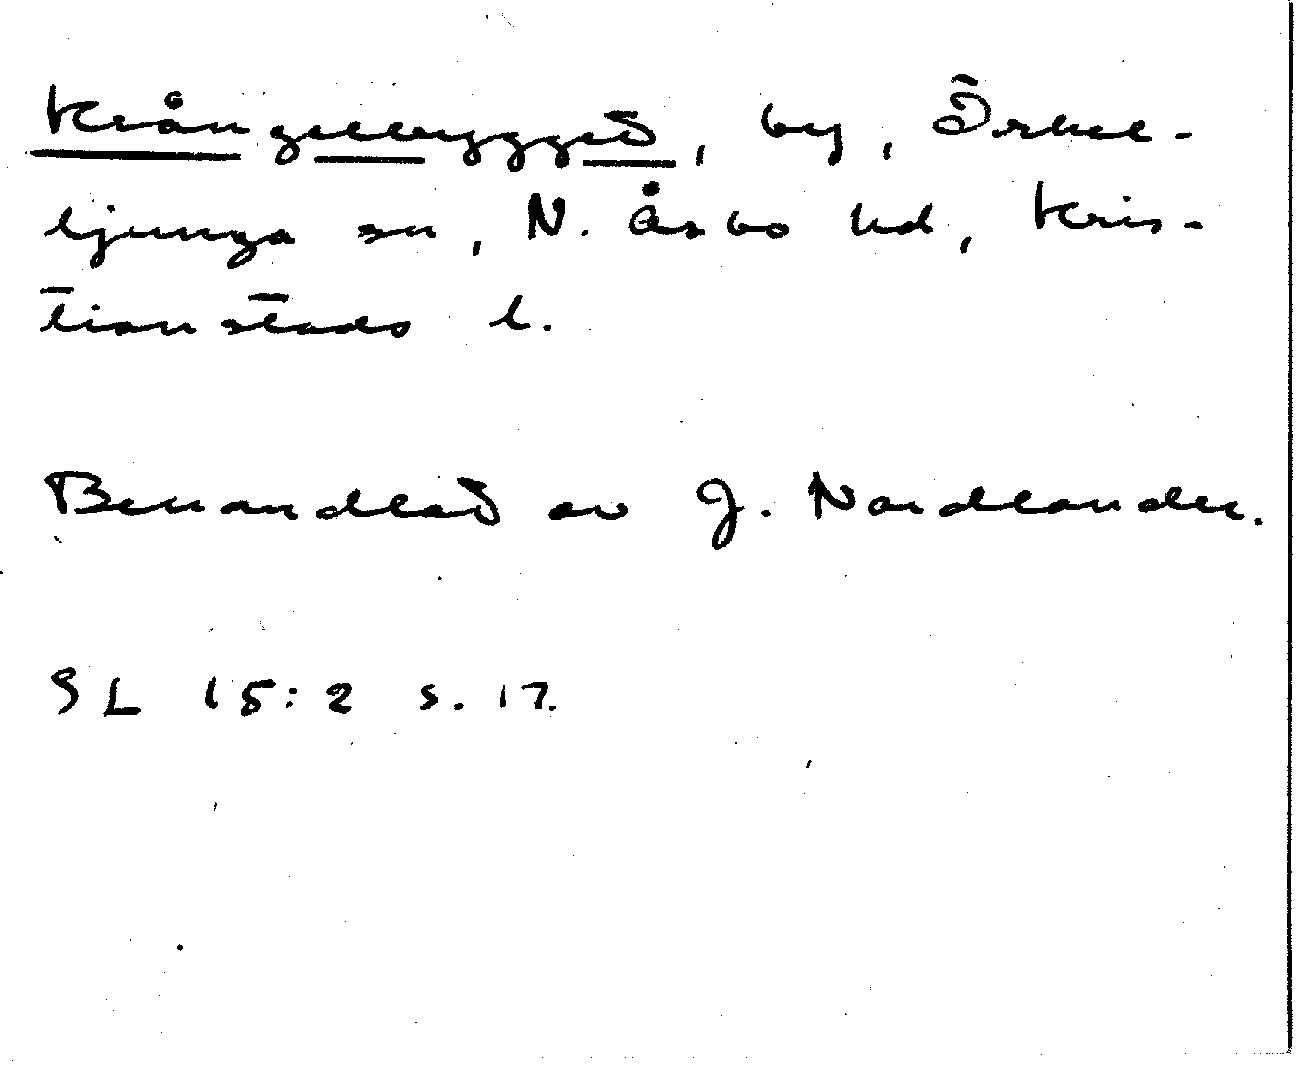 Krångelbygget, by, Örkel-
ljunga sn, N. Åsbo hd, Kris-
tianstads l.
Behandlat av J. Nordlander.
SL 15:2 s. 17.